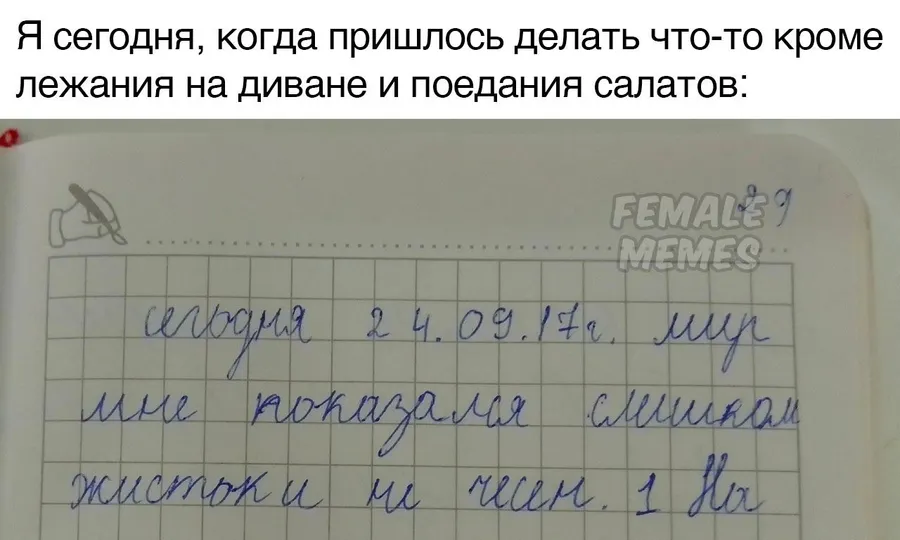 Я сегодня, когда пришлось делать что-то кроме
лежания на диване и поедания салатов:
FEMALE
MEMES
29
сегодня 24.09.17г. мир
мне показался слишком
жисток и не чесен. 1 На